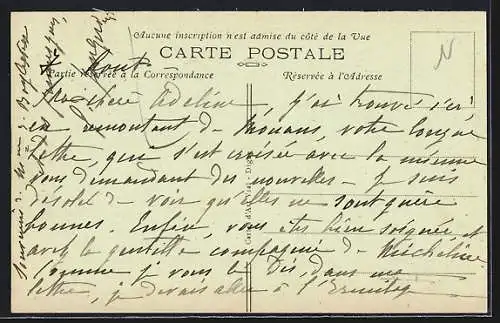 Aucune inscription n'est admise du côté de la Vue
CARTE POSTALE
Partie réservée à la Correspondance
Réservée à l'Adresse
N
Ma chère Adeline, j'ai trouvé ici
en remontant de Mouans, votre longue
lettre, qui s'est croisée avec la mienne
vous demandant des nouvelles - je suis
désolée de voir qu'elles ne sont guère
bonnes. Enfin, vous êtes bien soignée et
avez la gentille compagnie de Micheline
Comme je vous le dis, dans ma
lettre, je devais aller à l'Ermitage